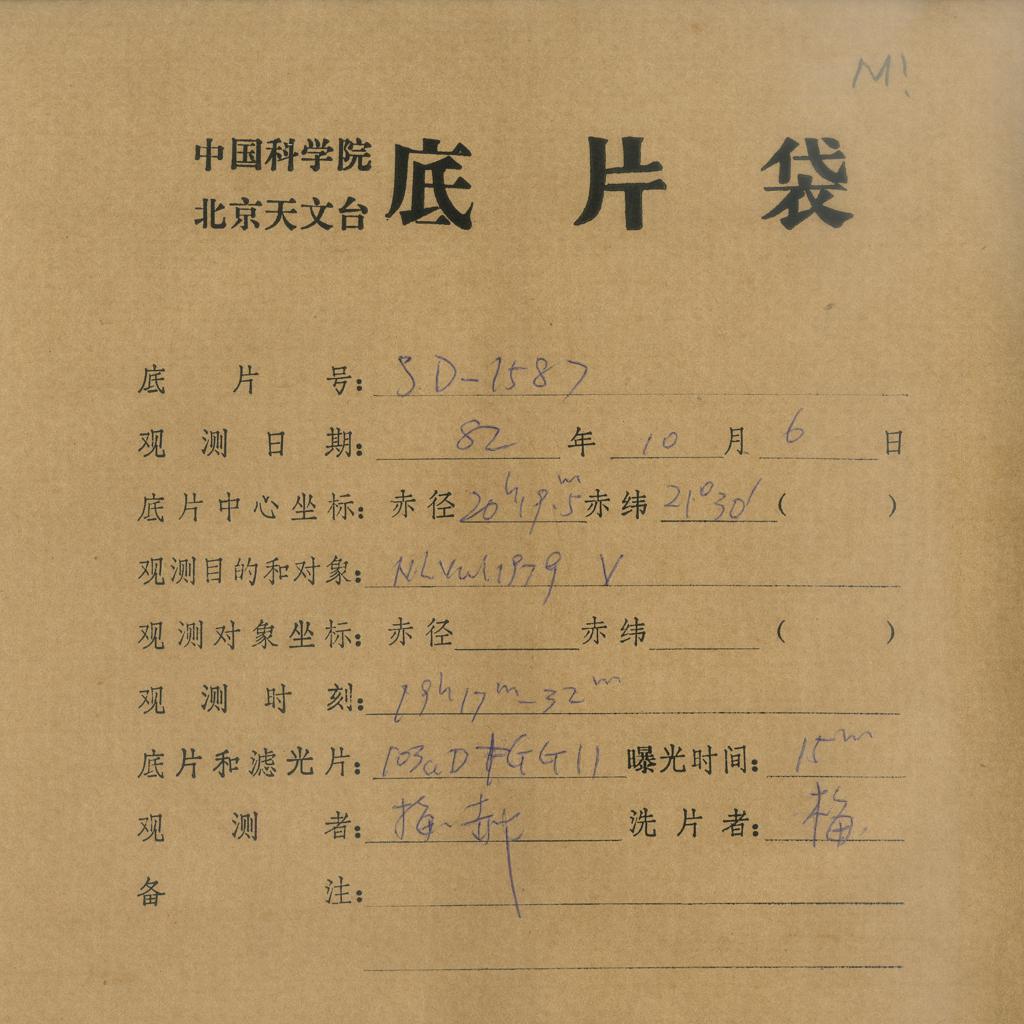 M!
中国科学院
北京天文台
底片袋
底片号: SD-1587
观测日期: 82年10月6日
底片中心坐标: 赤径20h19m.5赤纬21°30′( )
观测目的和对象: N.Vul1979 V
观测对象坐标: 赤径 赤纬 ( )
观测时刻: 19h17m-32m
底片和滤光片: 103aD+GG11 曝光时间: 15m
观测者: 梅.赫 洗片者: 梅.
备注: